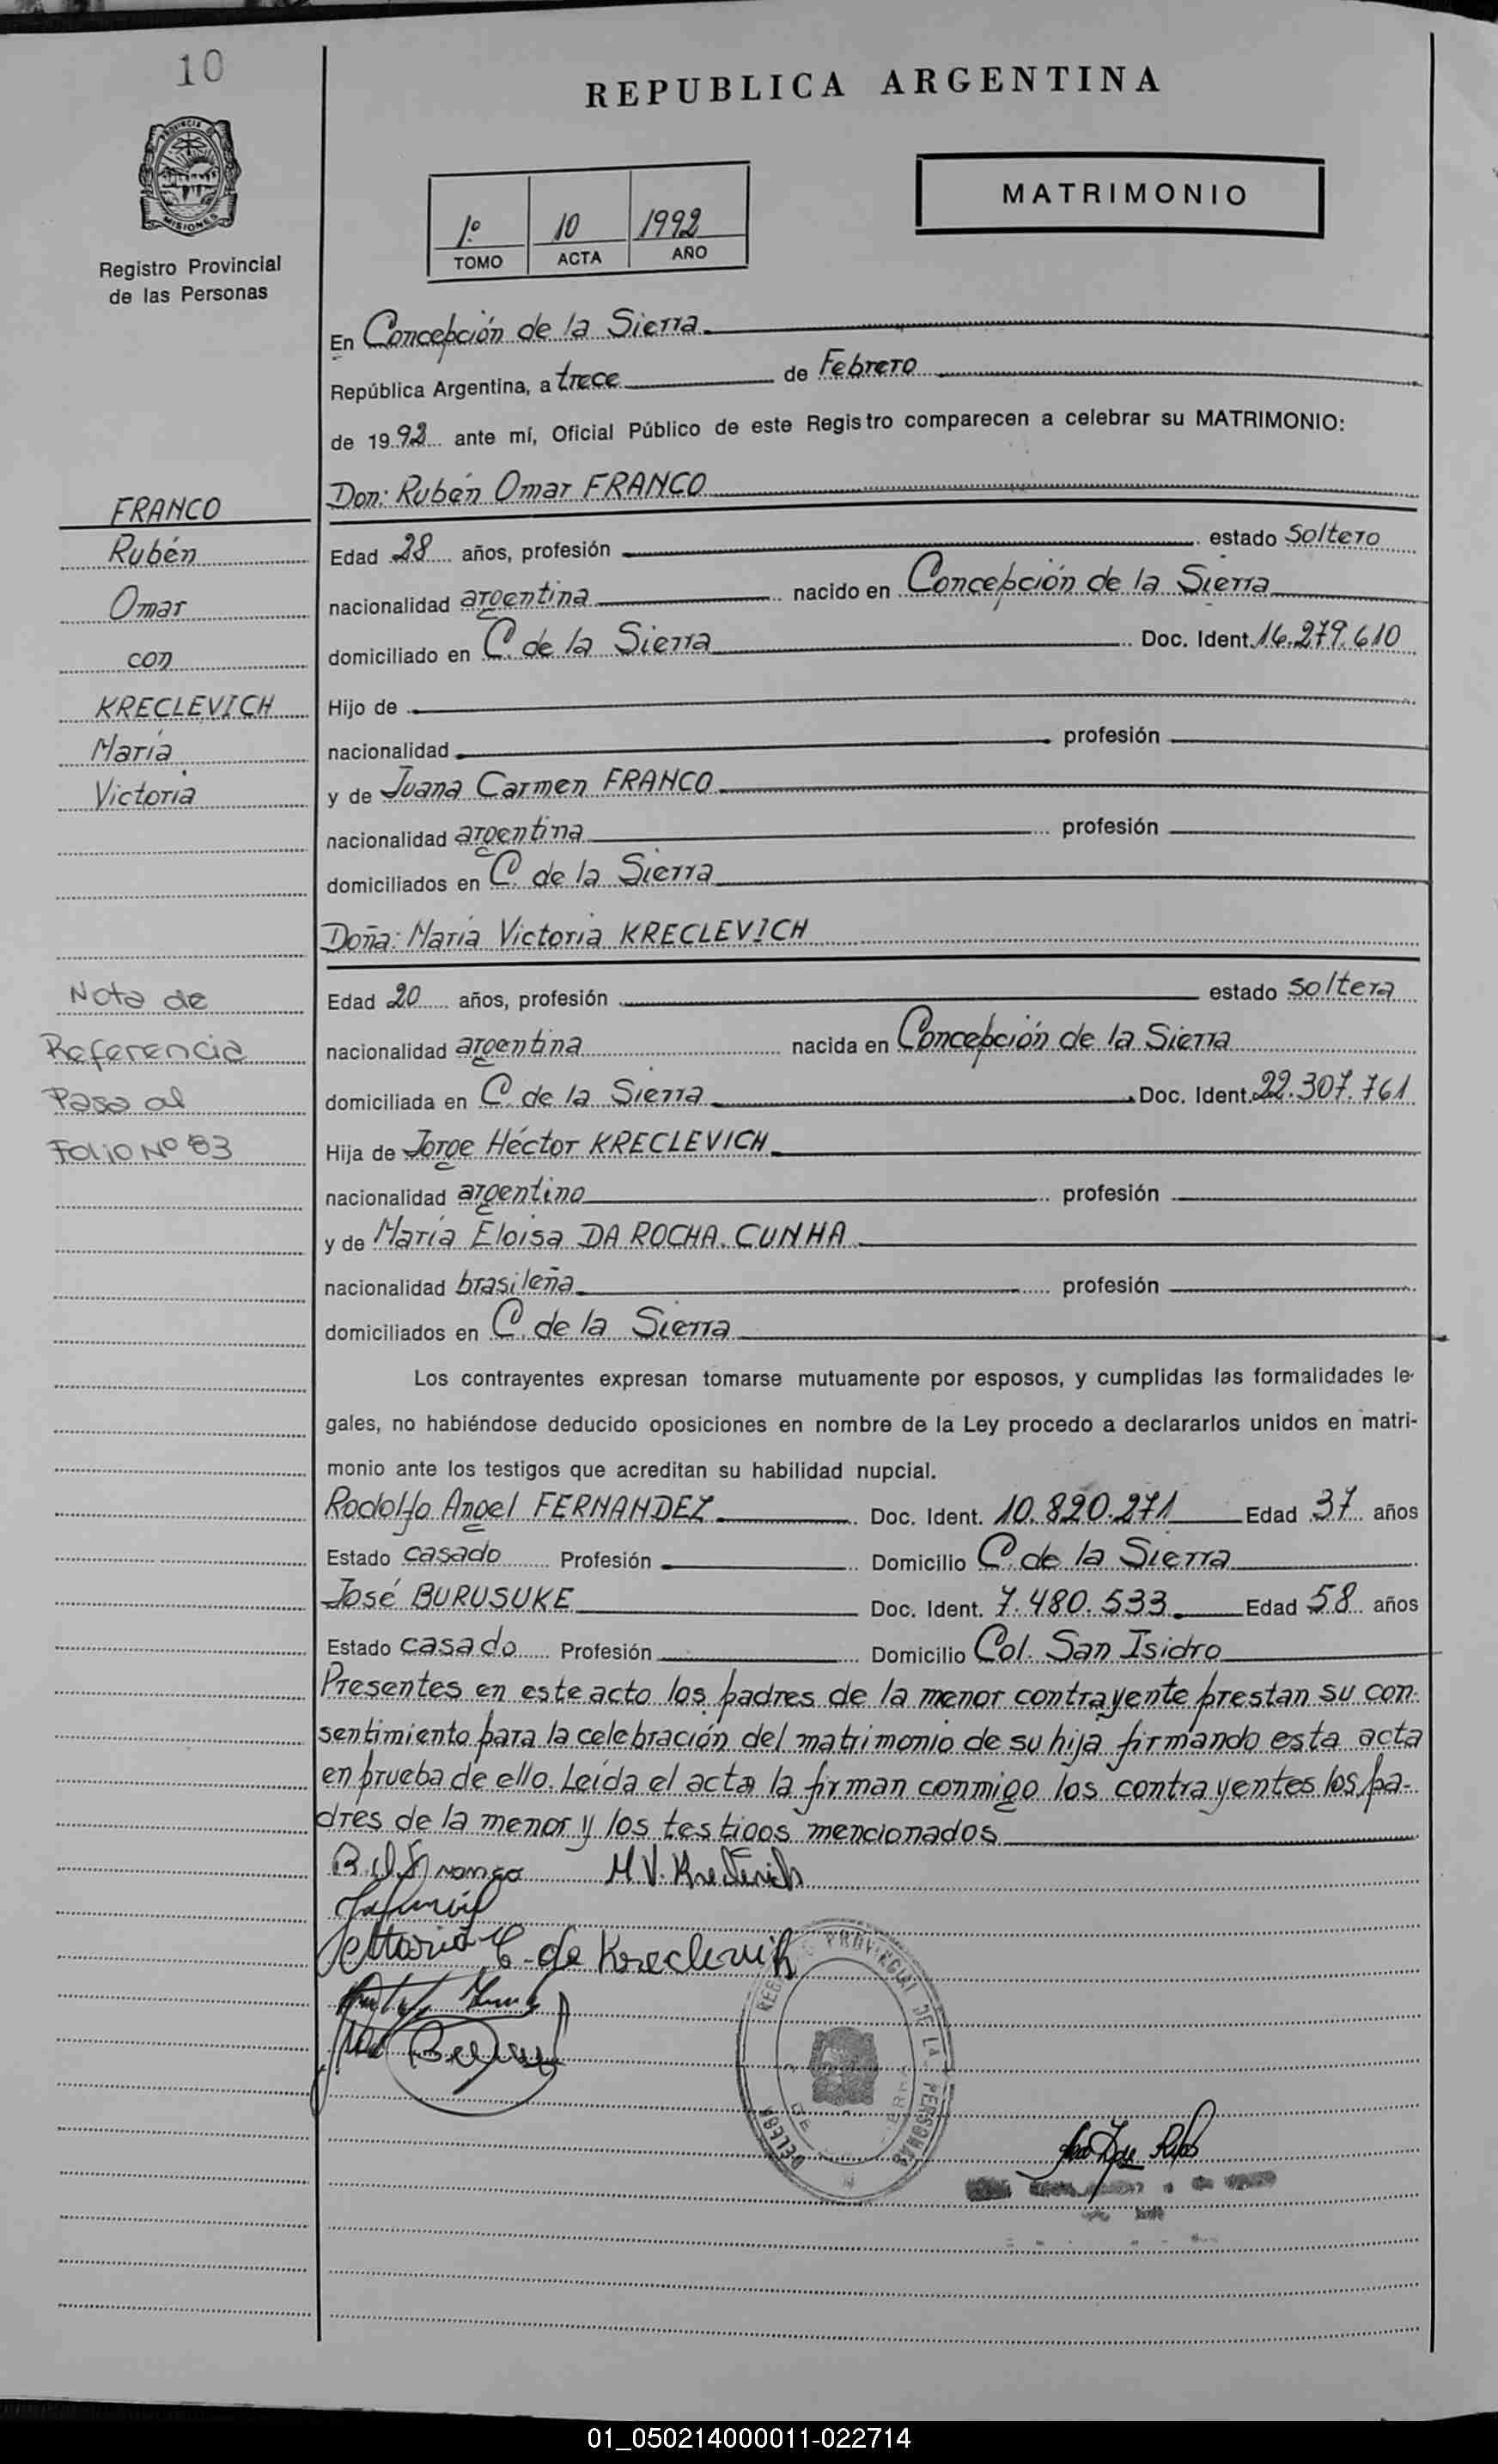 10
PROVINCIA DE
MISIONES
Registro Provincial
de las Personas
REPUBLICA ARGENTINA
1º 10 1992
TOMO ACTA AÑO
MATRIMONIO
En Concepción de la Sierra
República Argentina, a trece de Febrero
de 1992 ante mí, Oficial Público de este Registro comparecen a celebrar su MATRIMONIO:
Don: Rubén Omar FRANCO
Edad 28 años, profesión estado Soltero
nacionalidad argentina nacido en Concepción de la Sierra
domiciliado en C. de la Sierra Doc. Ident. 16.279.610
Hijo de
nacionalidad profesión
y de Juana Carmen FRANCO
nacionalidad argentina profesión
domiciliados en C. de la Sierra
Doña: María Victoria KRECLEVICH
Edad 20 años, profesión estado soltera
nacionalidad argentina nacida en Concepción de la Sierra
domiciliada en C. de la Sierra Doc. Ident. 22.307.761
Hija de Jorge Héctor KRECLEVICH
nacionalidad argentino profesión
y de María Eloisa DA ROCHA CUNHA
nacionalidad brasileña profesión
domiciliados en C. de la Sierra
Los contrayentes expresan tomarse mutuamente por esposos, y cumplidas las formalidades le-
gales, no habiéndose deducido oposiciones en nombre de la Ley procedo a declararlos unidos en matri-
monio ante los testigos que acreditan su habilidad nupcial.
Rodolfo Angel FERNANDEZ Doc. Ident. 10.820.271 Edad 37 años
Estado casado Profesión Domicilio C. de la Sierra
José BURUSUKE Doc. Ident. 7.480.533 Edad 58 años
Estado casado Profesión Domicilio Col. San Isidro
Presentes en este acto los padres de la menor contrayente prestan su con-
sentimiento para la celebración del matrimonio de su hija firmando esta acta
en prueba de ello. Leída el acta la firman conmigo los contrayentes los pa-
dres de la menor y los testigos mencionados
FRANCO
Rubén
Omar
con
KRECLEVICH
María
Victoria
Nota de
Referencia
Pasa al
Folio Nº 83
M V. Kreclevich
Maria C. de Kreclevich
PROVINCIAL DE LAS PERSONAS
01_050214000011-022714